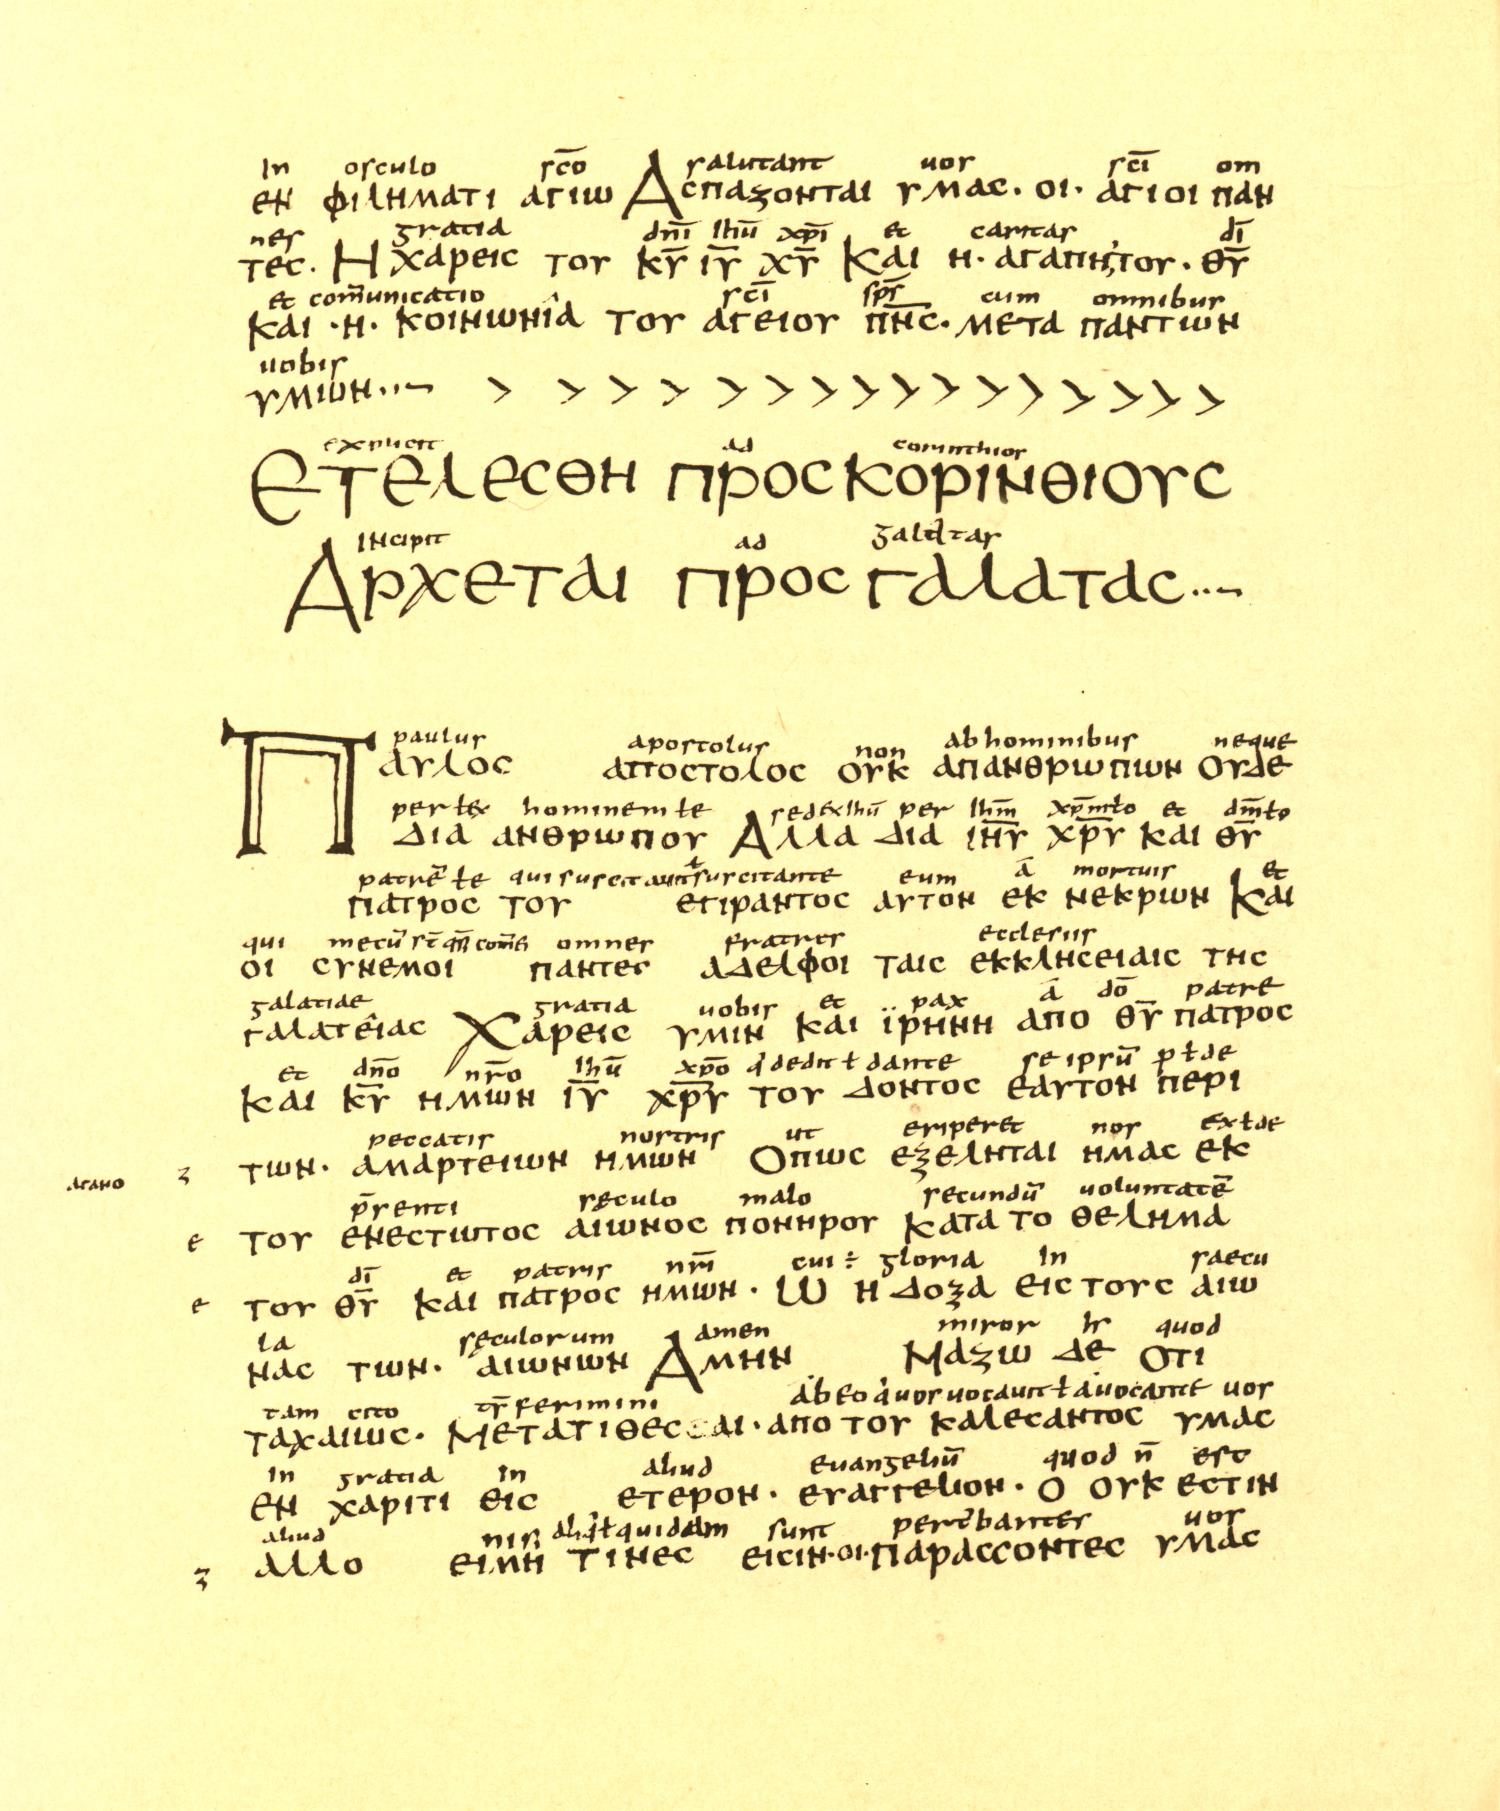 In osculo sc̅o salutant uos sc̅i om
εν φιληματι αγιω Ασπαζονται υμας · οι · αγιοι παν
nes gratia dn̅i ihu̅ xp̅i et caritas d̅i
τες · Η χαρεις του κ̅υ̅ ι̅υ̅ χ̅υ̅ Και η · αγαπη του · θ̅υ̅
et com̅unicatio sc̅i sp̅s cum omnibus
και · η · κοινωνια του αγειου π̅ν̅ς̅ · μετα παντων
uobis
υμων
explicit ad corinthios
Ετελεσθη προς κορινθιους
INcipit ad galatas
Αρχεται προς γαλατας
paulus apostolus non ab hominibus neque
Παυλος αποστολος ουκ απανθρωπων ουδε
per ł ex hominem ł e sed ex ihu̅ per ihm̅ xp̅m ł o et dm̅ ł o
δια ανθρωπου Αλλα δια ι̅η̅υ̅ χ̅ρ̅υ̅ και θ̅υ̅
patre̅ ł e qui suscitauit ł suscitante eum a̅ mortuis et
πατρος του εγιραντος αυτον εκ νεκρων Και
qui mecu̅ omnes fratres ecclesiis
οι συνεμοι παντες αδελφοι ταις εκκλησειαις της
galatiae gratia uobis et pax a̅ do̅ patre
γαλατειας Χαρεις υμιν και ϊρηνη απο θ̅υ̅ πατρος
et dn̅o nr̅o ihu̅ xp̅o q dedit ł dante se ipsu̅ p ł de
και κ̅υ̅ ημων ι̅υ̅ χ̅ρ̅υ̅ του δοντος εαυτον περι
peccatis nostris ut eriperet nos ex ł de
των · αμαρτειων ημων Οπως εξεληται ημας εκ
αγανο
p̅senti sęculo malo secundu̅ uoluntate̅
του ενεστωτος αιωνος πονηρου κατα το θελημα
d̅i et patris nr̅i cui ÷ gloria In saecu
του θ̅υ̅ και πατρος ημων · Ω η δοξα εις τους αιω
la sęculorum amen miror quod
νας των · αιωνων Αμην Μαζω δε οτι
tam cito tr̅sferimini ab eo q uos uocauit ł auocante uos
ταχαιως · Μετατιθεσσαι · απο του καλεσαντος υμας
In gratia in aliud euangeliu̅ quod n̅ est
εν χαριτι εις ετερον · ευαγγελιον · ο ουκ εστιν
aliud nisi aliq ł quidam sunt perturbantes uos
αλλο ειμη τινες εισιν · οι · παρασσοντες υμας